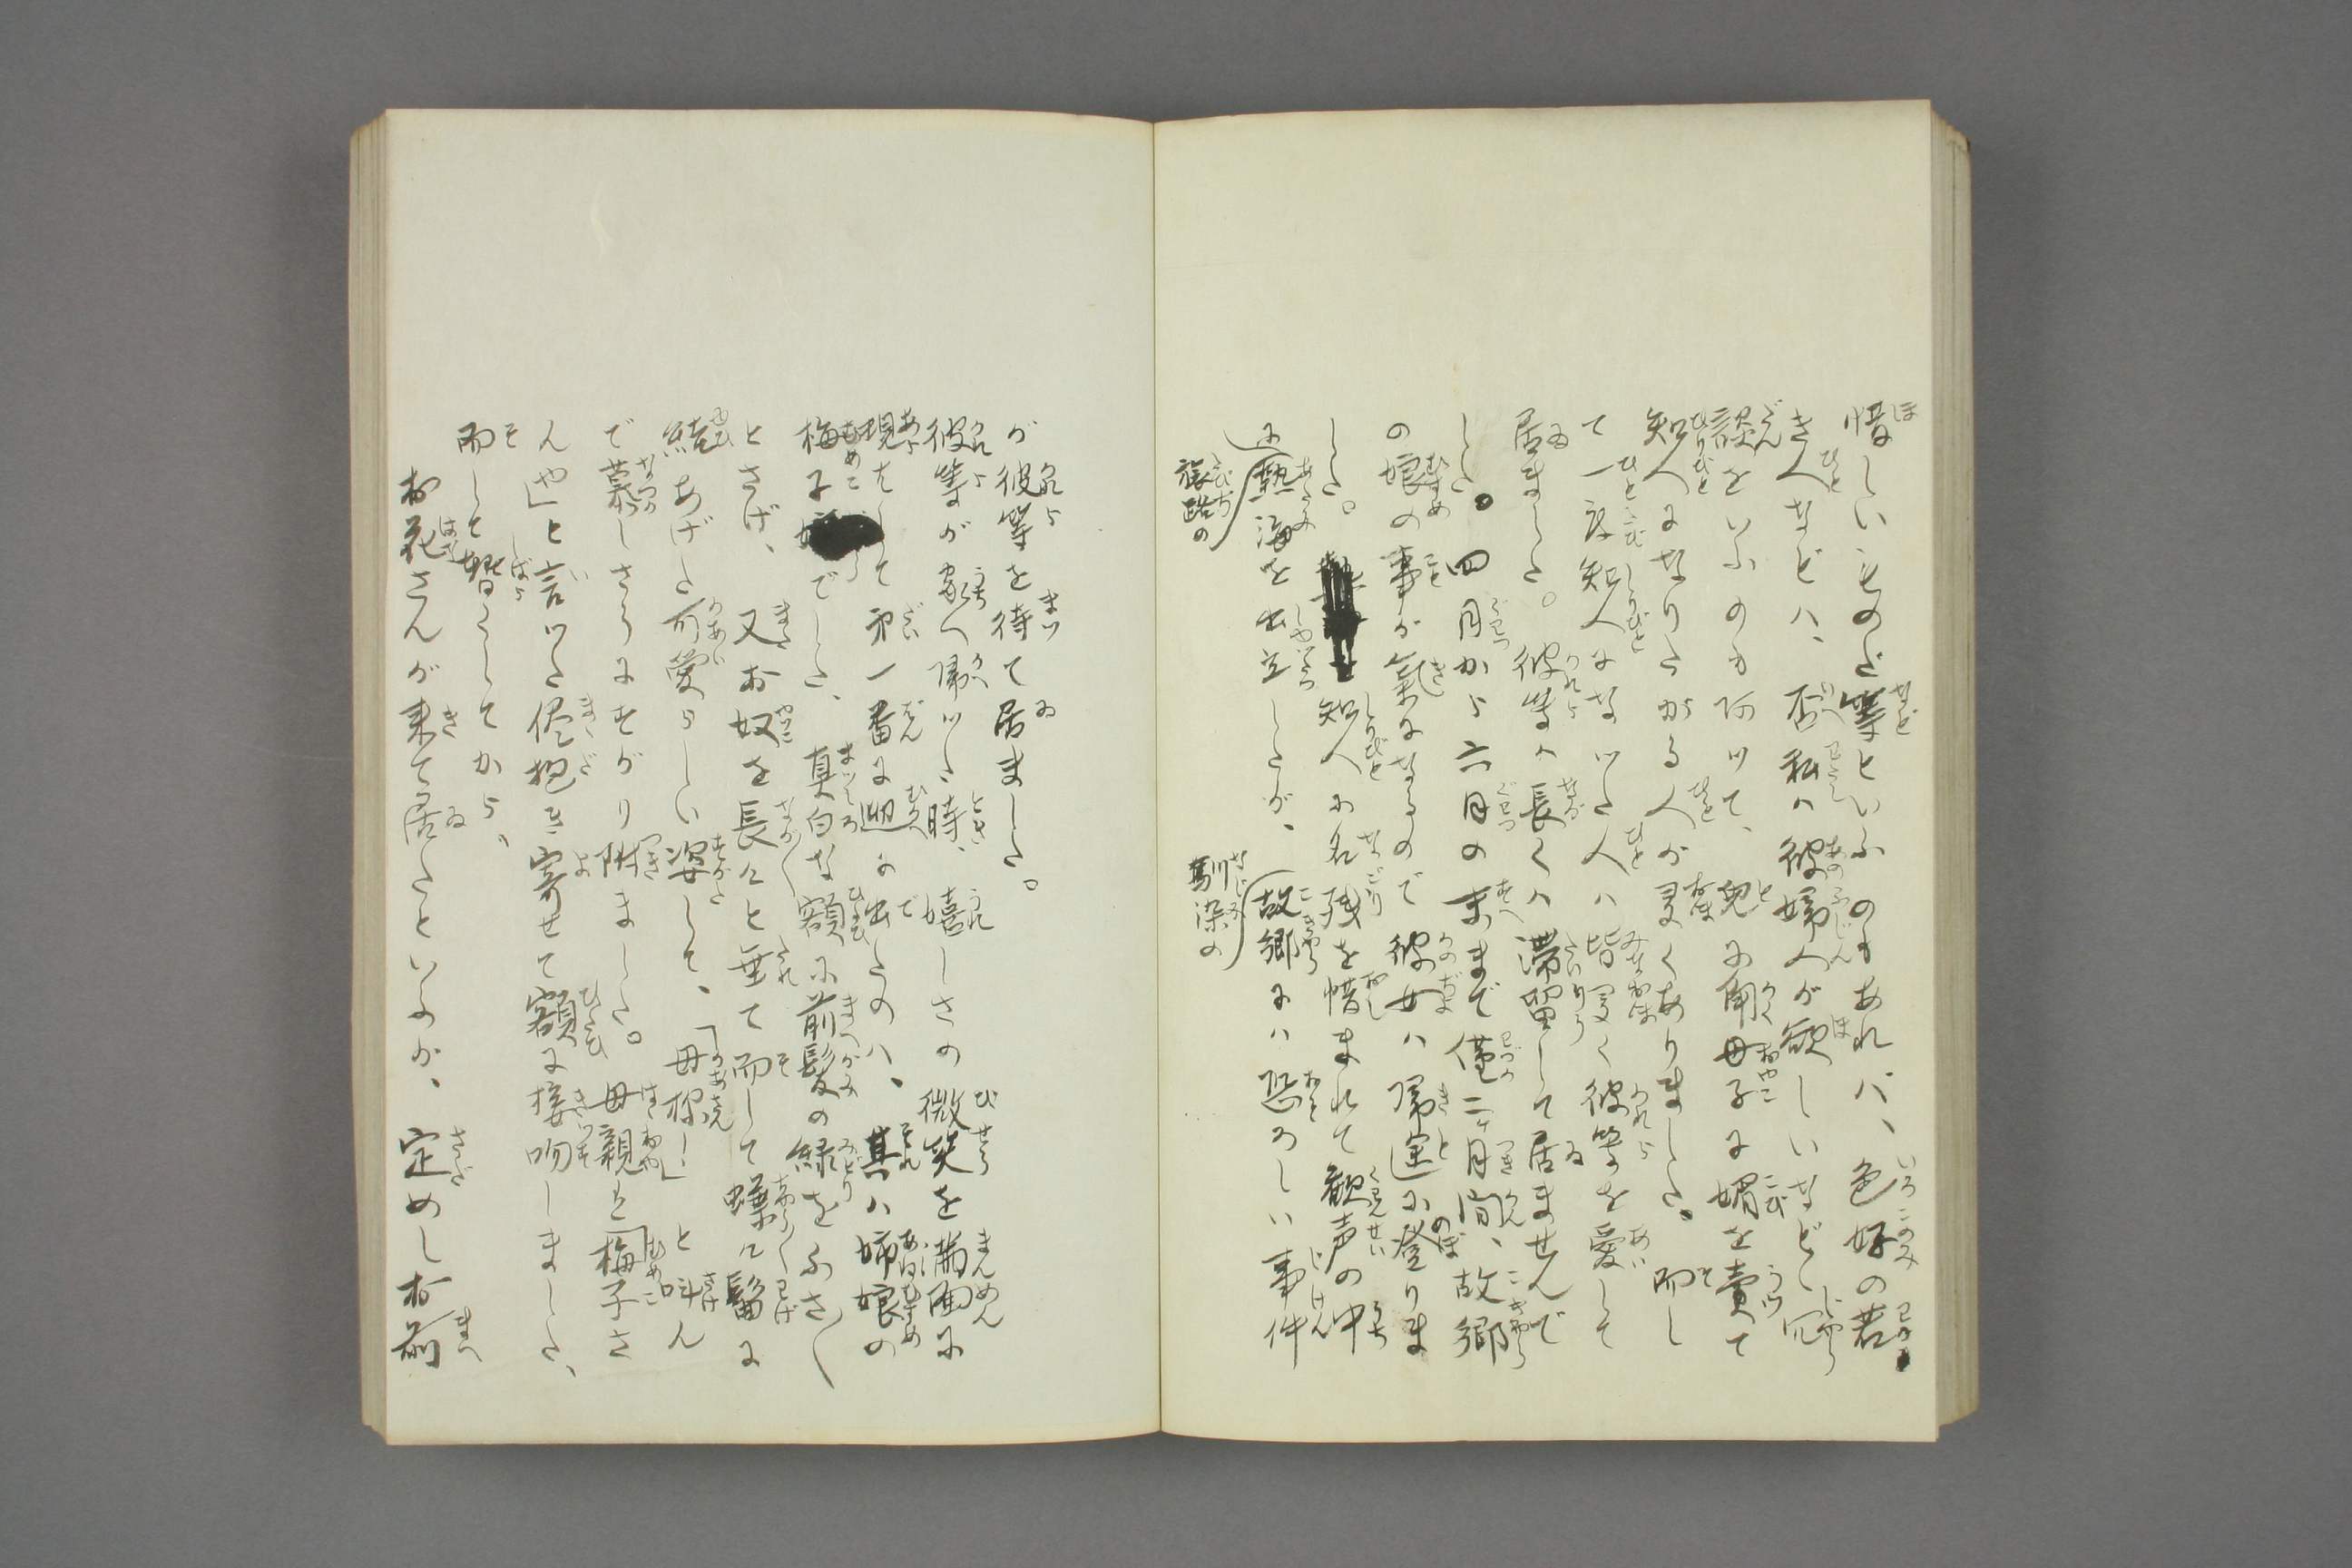 惜しいものだ等といふのもあれバ、色好の若
き人などハ、否私ハ彼婦人が欲しいなどゝ冗
談をいふのも阿ツて、兎に角母子に媚を賣て
知人になりたがる人が夛くありました。而し
て一度知人になツた人ハ皆夛く彼等を愛して
居ました。彼等ハ長くハ滞留して居ませんで
した。四月から六月の末まで僅二ヶ月間、故郷
の娘の事が氣になるので彼女ハ帰途に登りま
した。知人に名残を惜まれて歓声の中
に旅路の熱海を出立したが、馴染の故郷にハ恐ろしい事件
が彼等を待て居ました。
彼等が家へ帰ツた時、嬉しさの微笑を満面に
現はして第一番に迎に出たのハ、其ハ姉娘の
梅子でした、真白な額に前髪の緑をふさ〳〵
とさげ、又お奴を長々と垂て而して蝶々髷に
結あげた可愛らしい姿して、「母様!」と叫ん
で慕しさうにすがり附ました。母親も「梅子さ
んや」と言ツた儘抱き寄せて額に接吻しました、
而して暫くしてから、
お花さんが来て居たといふが、定めしお前